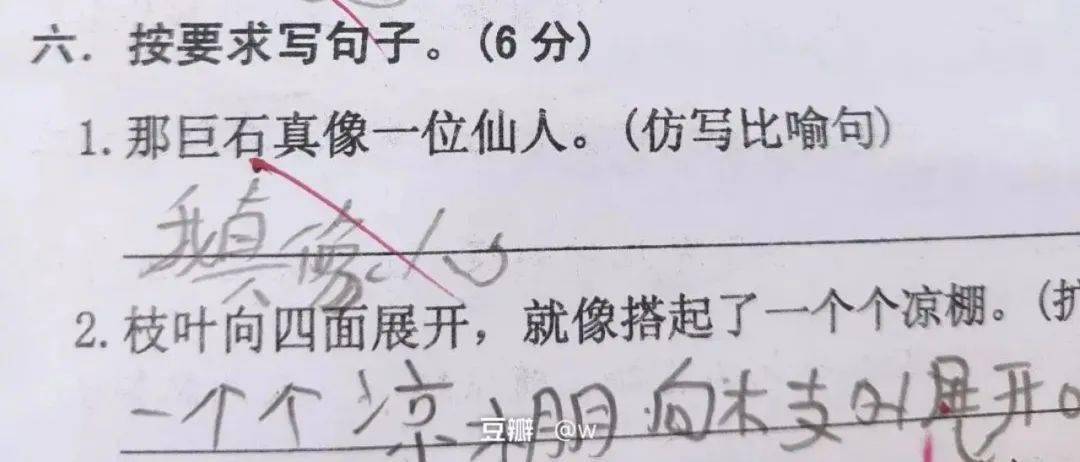 六. 按要求写句子。(6分)
1. 那巨石真像一位仙人。(仿写比喻句)
我真像人。
2. 枝叶向四面展开，就像搭起了一个个凉棚。(扩
一个个凉棚向枝叶展开。
豆瓣 @w